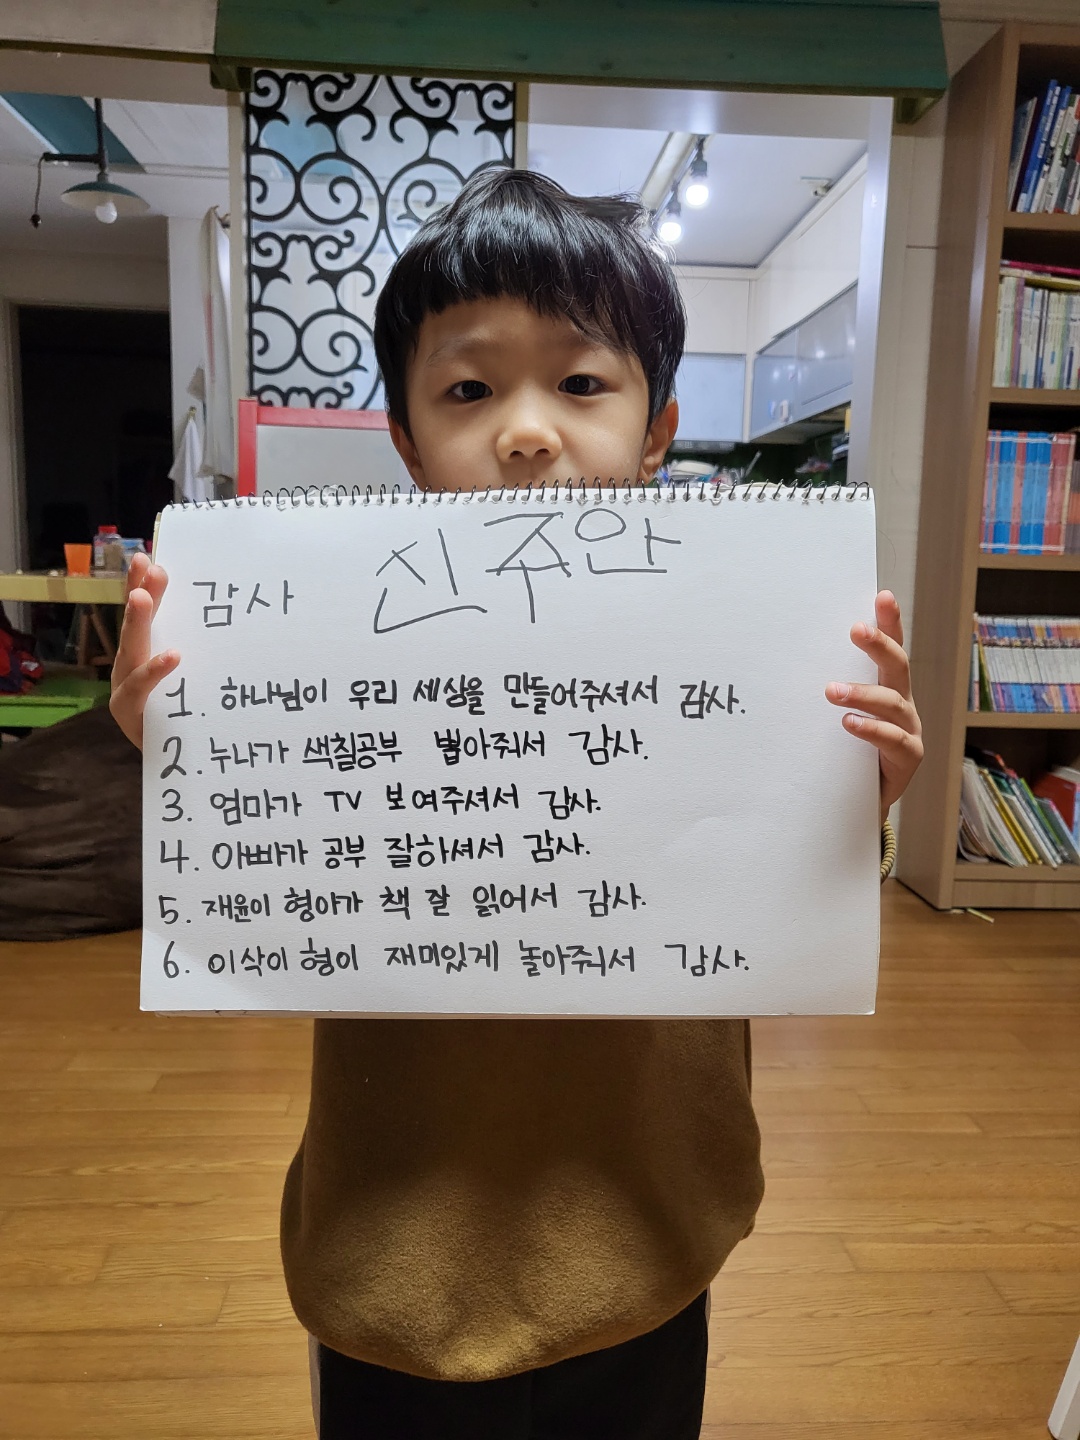 감사 신주안
1. 하나님이 우리 세상을 만들어주셔서 감사.
2. 누나가 색칠공부 뽑아줘서 감사.
3. 엄마가 TV 보여주셔서 감사.
4. 아빠가 공부 잘하셔서 감사.
5. 재윤이 형아가 책 잘 읽어서 감사.
6. 이삭이 형이 재미있게 놀아줘서 감사.